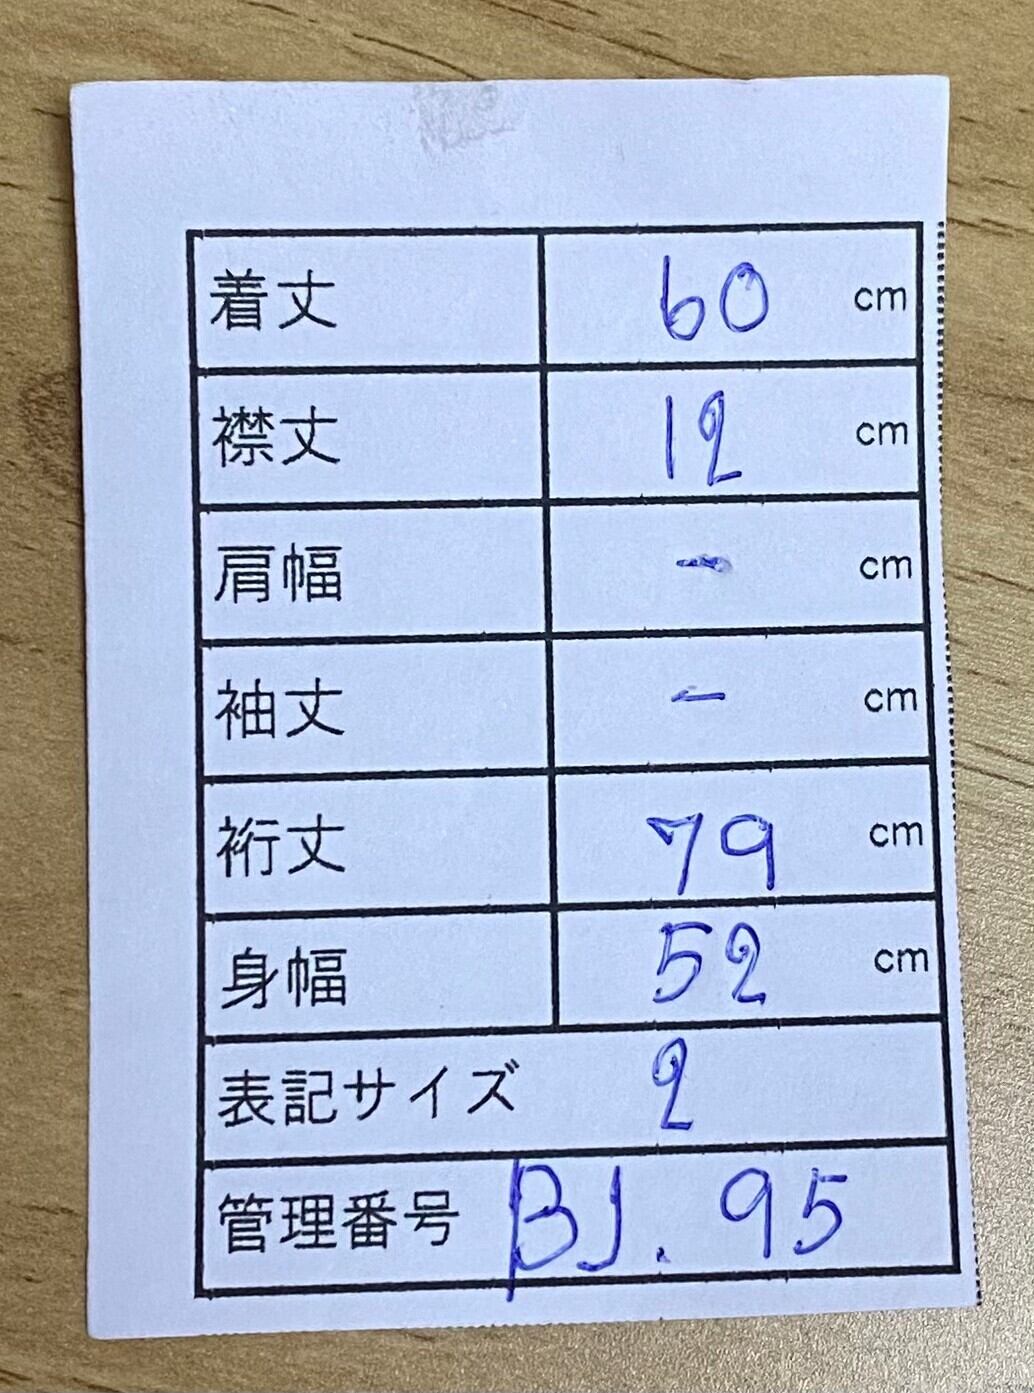 着丈 60 cm
襟丈 12 cm
肩幅 - cm
袖丈 - cm
裄丈 79 cm
身幅 52 cm
表記サイズ 2
管理番号 BJ. 95